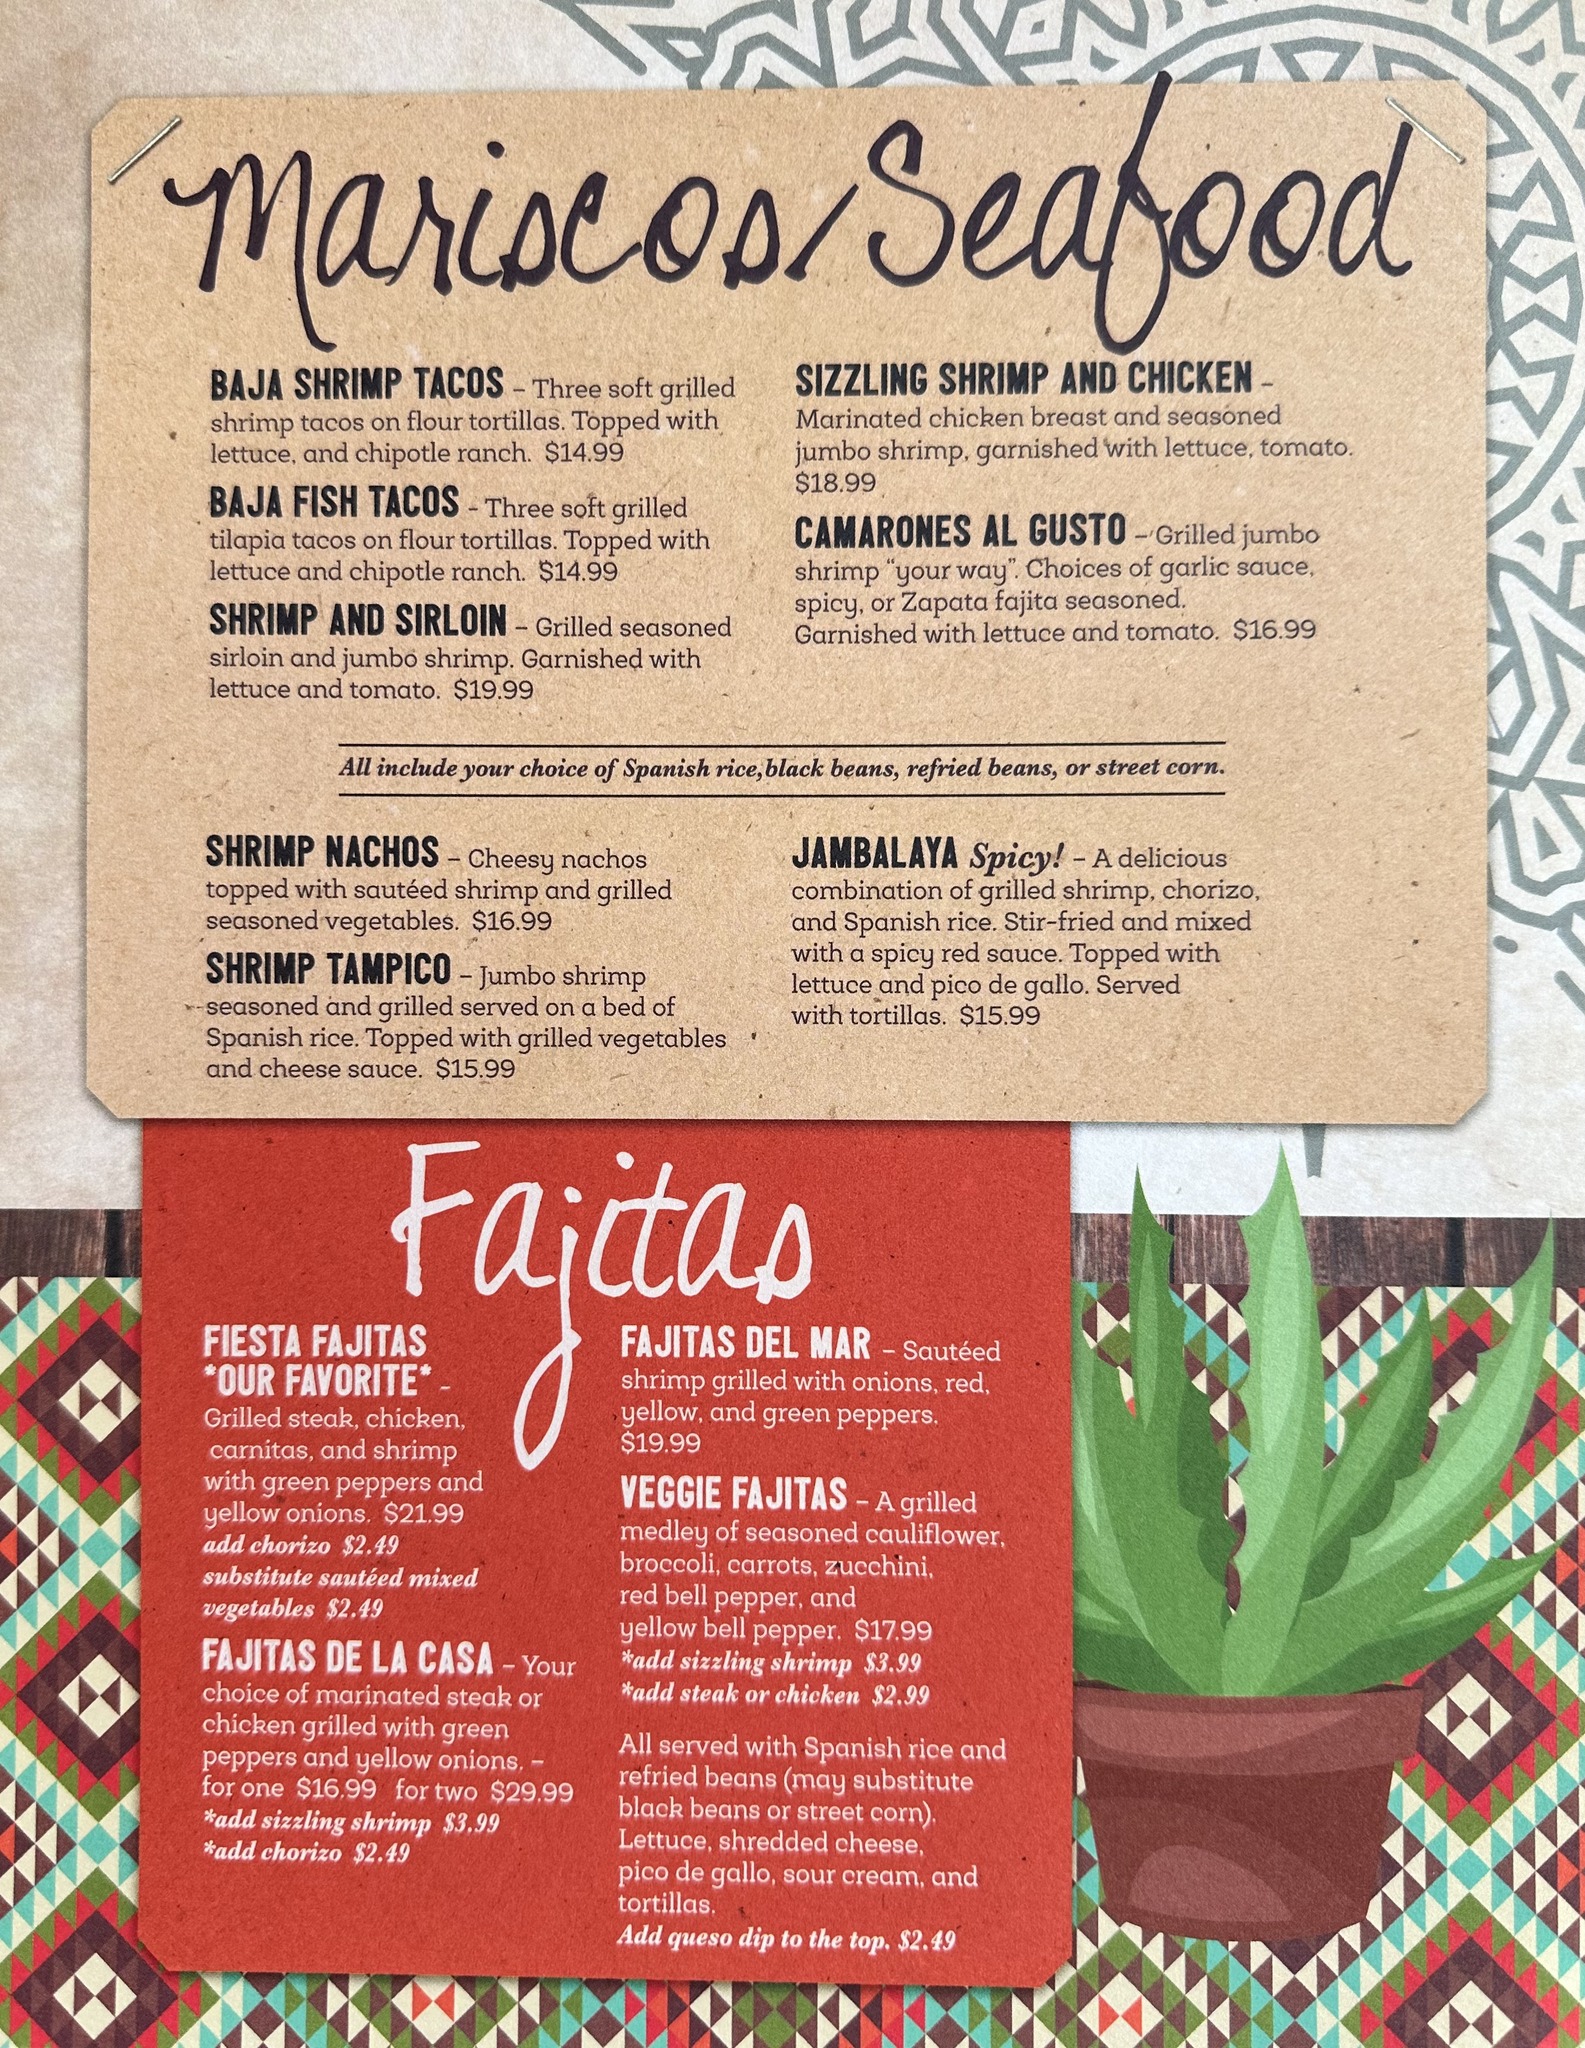 Mariscos/Seafood
BAJA SHRIMP TACOS – Three soft grilled
shrimp tacos on flour tortillas. Topped with
lettuce, and chipotle ranch. $14.99
BAJA FISH TACOS - Three soft grilled
tilapia tacos on flour tortillas. Topped with
lettuce and chipotle ranch. $14.99
SHRIMP AND SIRLOIN – Grilled seasoned
sirloin and jumbo shrimp. Garnished with
lettuce and tomato. $19.99
SIZZLING SHRIMP AND CHICKEN –
Marinated chicken breast and seasoned
jumbo shrimp, garnished with lettuce, tomato.
$18.99
CAMARONES AL GUSTO – Grilled jumbo
shrimp “your way”. Choices of garlic sauce,
spicy, or Zapata fajita seasoned.
Garnished with lettuce and tomato. $16.99
All include your choice of Spanish rice,black beans, refried beans, or street corn.
SHRIMP NACHOS – Cheesy nachos
topped with sautéed shrimp and grilled
seasoned vegetables. $16.99
SHRIMP TAMPICO – Jumbo shrimp
seasoned and grilled served on a bed of
Spanish rice. Topped with grilled vegetables
and cheese sauce. $15.99
JAMBALAYA Spicy! – A delicious
combination of grilled shrimp, chorizo,
and Spanish rice. Stir-fried and mixed
with a spicy red sauce. Topped with
lettuce and pico de gallo. Served
with tortillas. $15.99
Fajitas
FIESTA FAJITAS
*OUR FAVORITE* -
Grilled steak, chicken,
carnitas, and shrimp
with green peppers and
yellow onions. $21.99
add chorizo $2.49
substitute sautéed mixed
vegetables $2.49
FAJITAS DE LA CASA – Your
choice of marinated steak or
chicken grilled with green
peppers and yellow onions. –
for one $16.99 for two $29.99
*add sizzling shrimp $3.99
*add chorizo $2.49
FAJITAS DEL MAR – Sautéed
shrimp grilled with onions, red,
yellow, and green peppers.
$19.99
VEGGIE FAJITAS – A grilled
medley of seasoned cauliflower,
broccoli, carrots, zucchini,
red bell pepper, and
yellow bell pepper. $17.99
*add sizzling shrimp $3.99
*add steak or chicken $2.99
All served with Spanish rice and
refried beans (may substitute
black beans or street corn).
Lettuce, shredded cheese,
pico de gallo, sour cream, and
tortillas.
Add queso dip to the top. $2.49